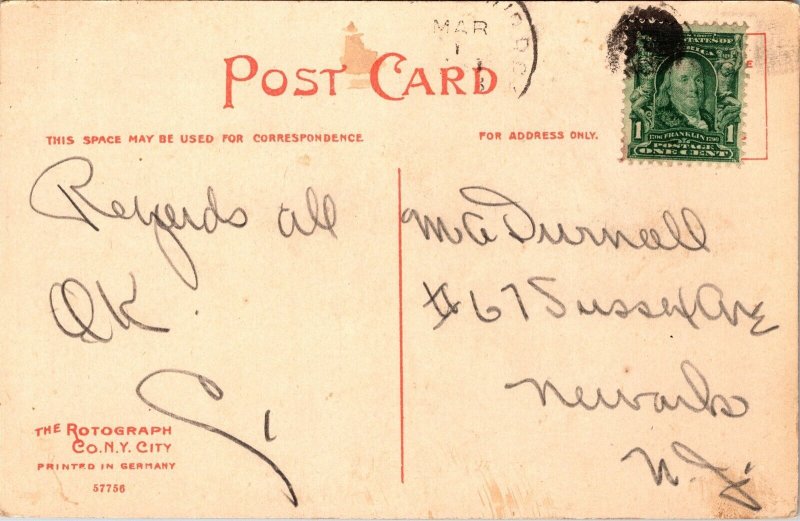 MAR
1
POST CARD
THIS SPACE MAY BE USED FOR CORRESPONDENCE
FOR ADDRESS ONLY.
1706 FRANKLIN 1790
1 POSTAGE 1
ONE CENT
Regards all
OK.
M A Durnall
#67 Sussex Ave
Newark
N.J.
THE ROTOGRAPH
CO. N.Y. CITY
PRINTED IN GERMANY
57756